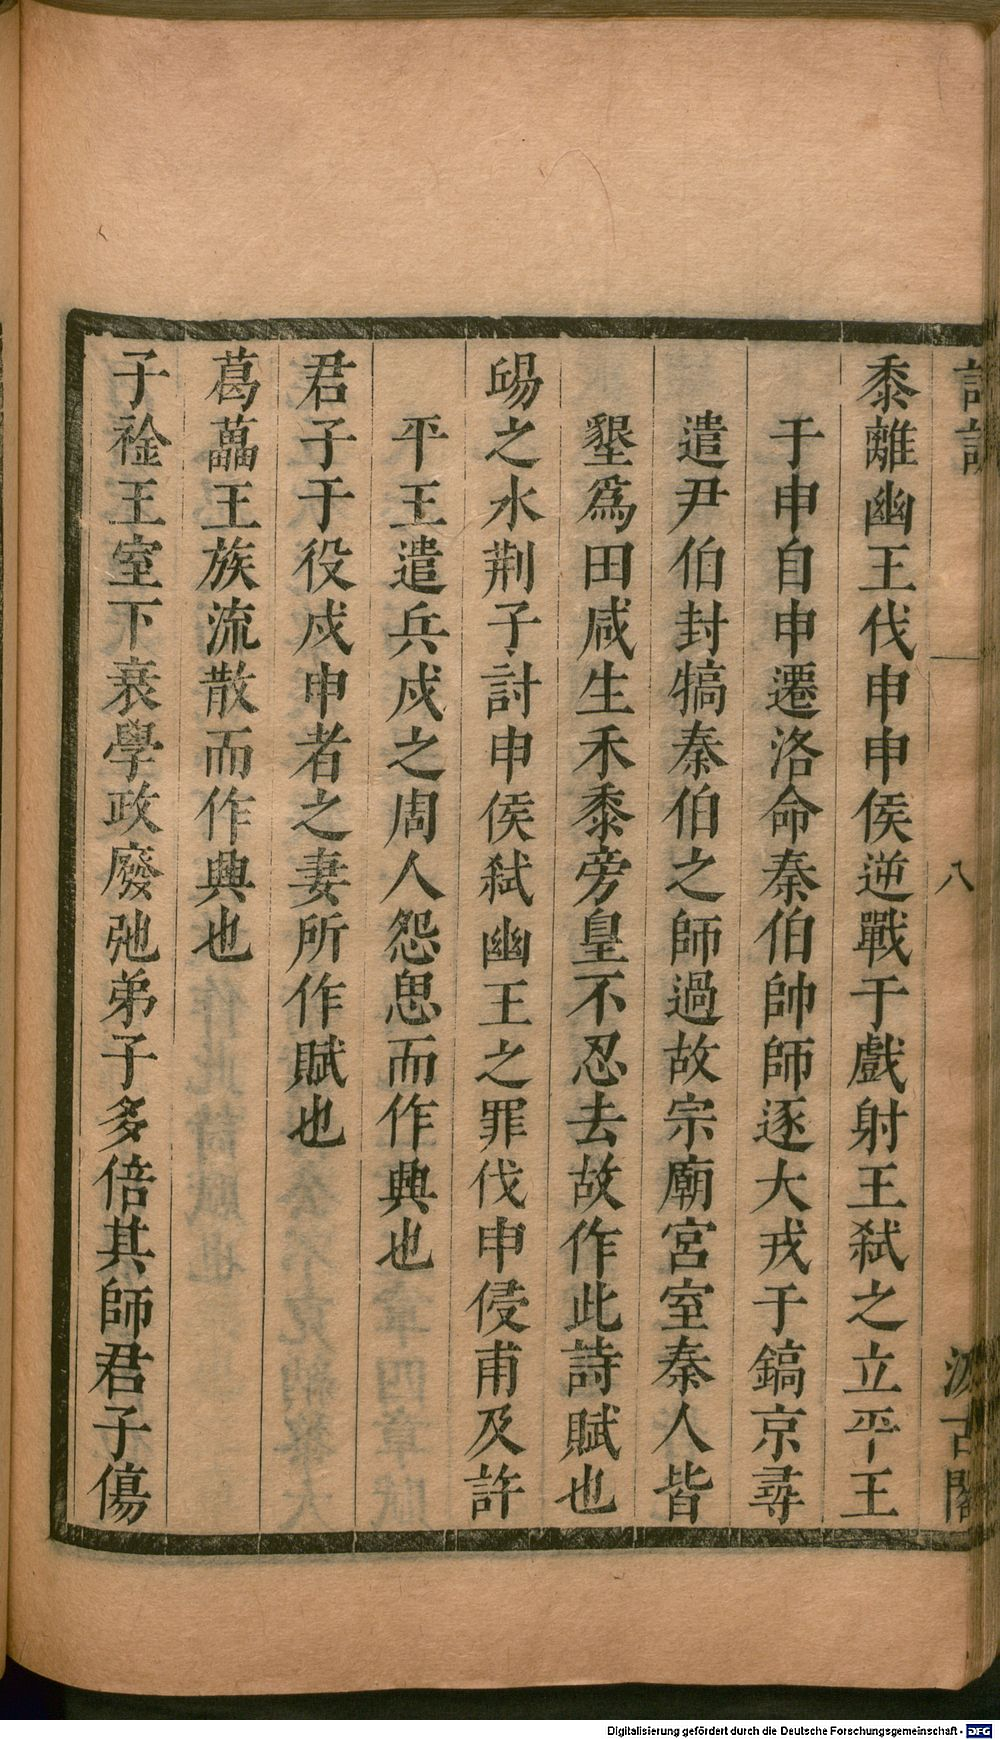 詩說
八
汲古閣
黍離幽王伐申申侯逆戰于戲射王弑之立平王
于申自申遷洛命秦伯帥師逐犬戎于鎬京尋
遣尹伯封犒秦伯之師過故宗廟宮室秦人皆
墾爲田咸生禾黍旁皇不忍去故作此詩賦也
𨛭之水荆子討申侯弑幽王之罪伐申侵甫及許
平王遣兵戍之周人怨思而作興也
君子于役戍申者之妻所作賦也
葛藟王族流散而作興也
子衿王室下衰學政廢弛弟子多倍其師君子傷
Digitalisierung gefördert durch die Deutsche Forschungsgemeinschaft - DFG